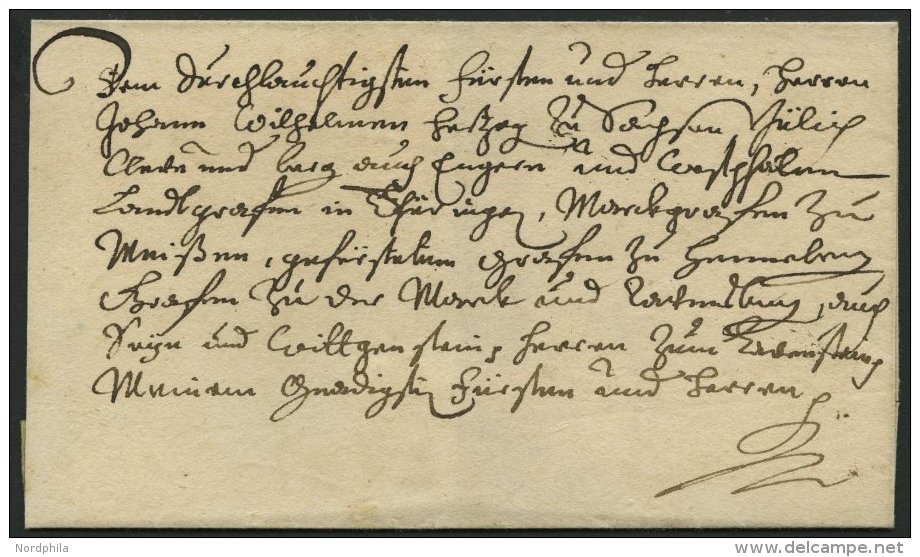 Dem Durchlauchtigsten Fürsten und Herren, Herren
Johann Wilhelmen Hertzog zu Sachsen Jülich
Cleve und Berg auch Engern und Westphalen
Landtgrafen in Thüringen, Marckgrafen zu
Meißen, gefürstetem Grafen zu Henneberg
Grafen zu der Marck und Ravensburg, auch
Sayn und Wittgenstein, Herren zum Ravenstein,
Meinem Gnedigste Fürsten und Herren
Nordphila
www.delcampe.net